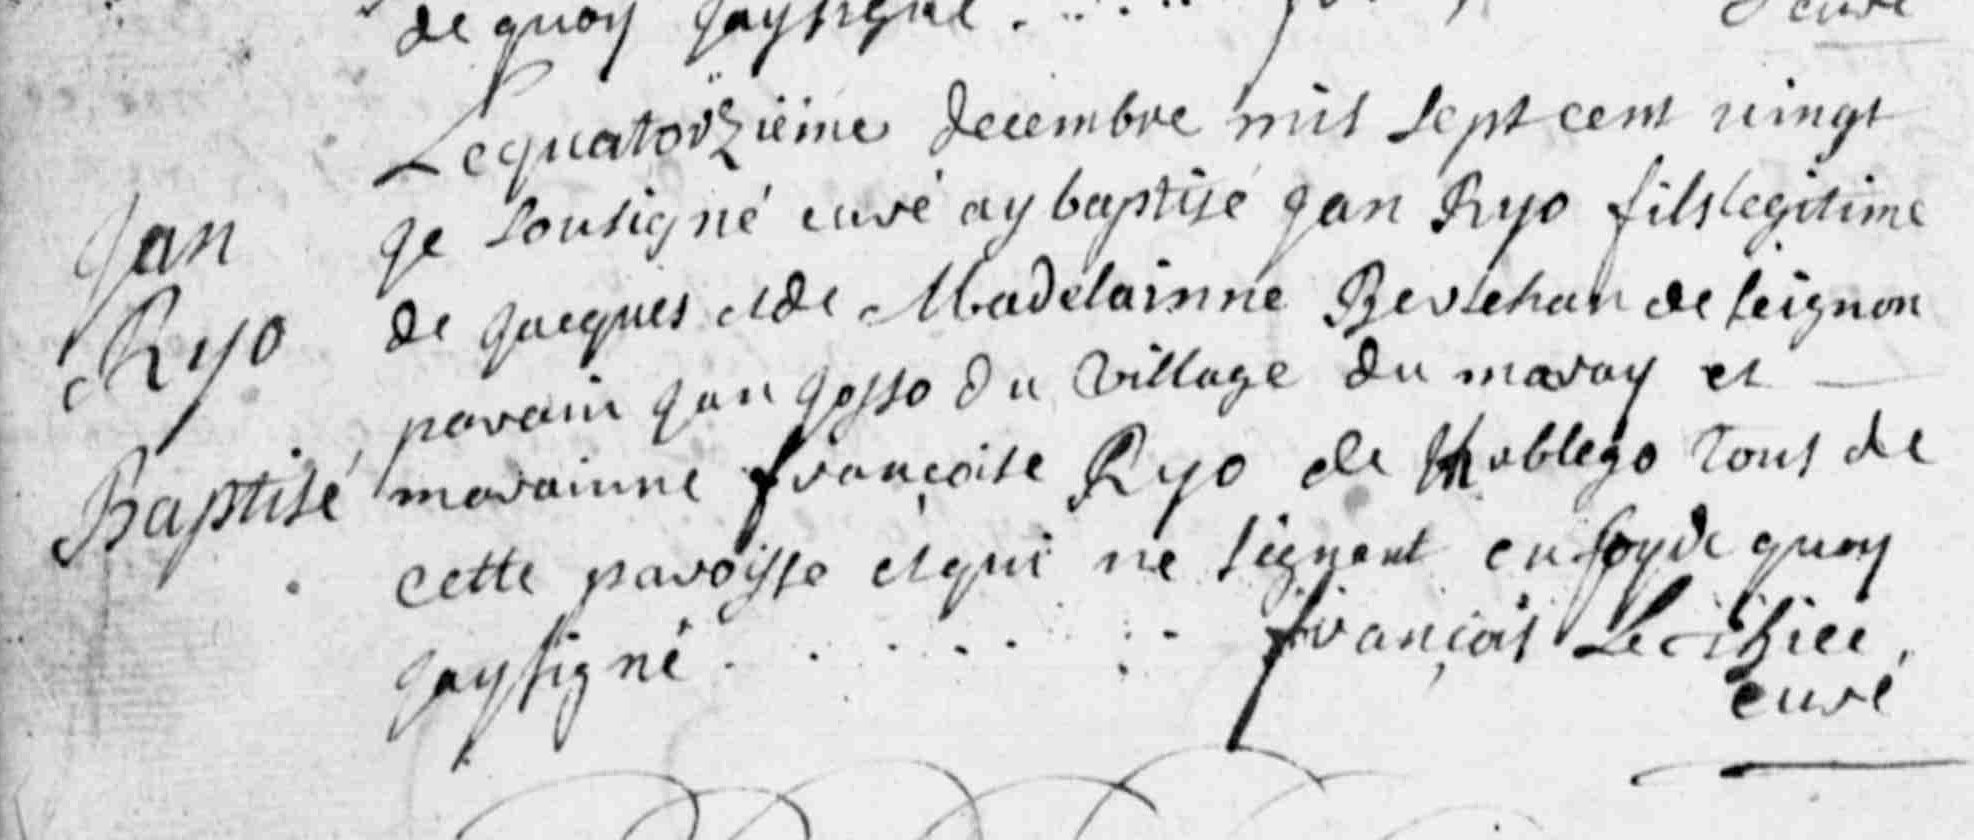 de quoy jay signé . . . . curé
Le quatorzieme decembre mil sept cent vingt
je sousigné curé ay baptisé Jan Ryo fils legitime
Jan
de jacques et de Madelainne Berlehau de leignon
Ryo
parain jan josso du village du maray et
Baptisé
marainne françoise Ryo de Kroblego tous de
cette paroisse et qui ne signent en foy de quoy
jay signé . . . . . . . françois Le
curé